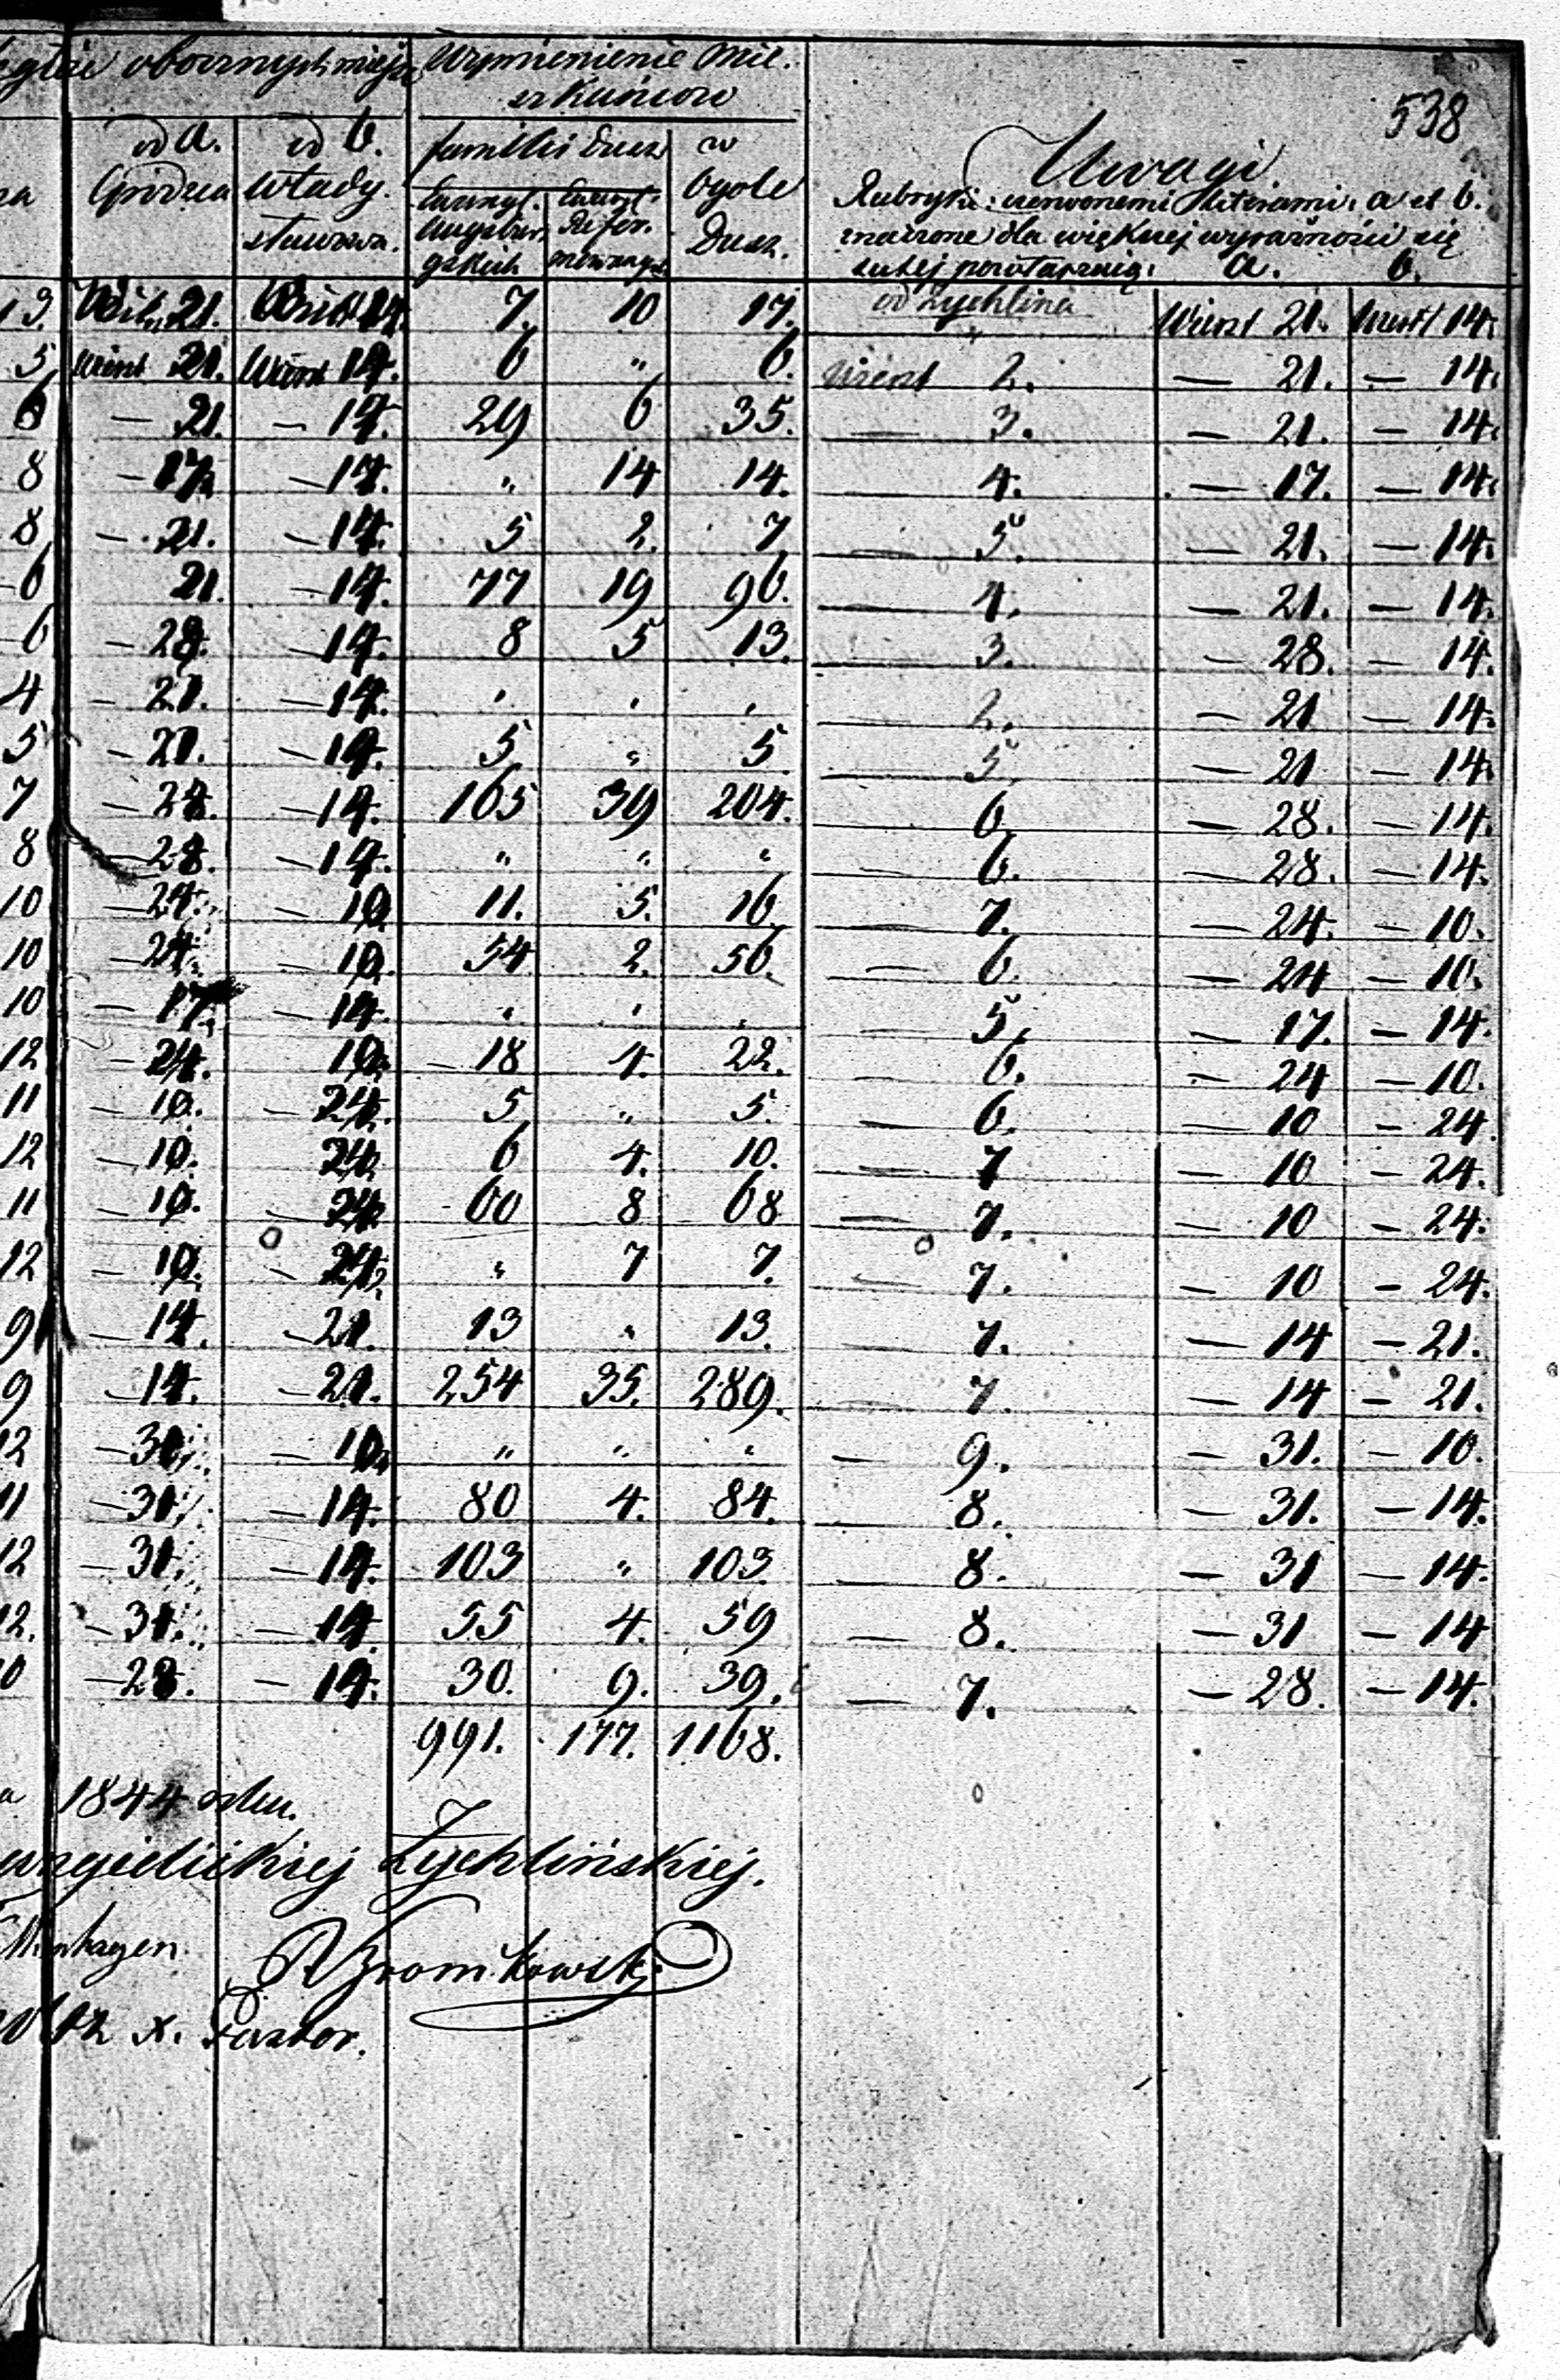 538
obocznych miejsc Wymienienie Mie.
szkańców
od a. od b. familii Dusz w Uwagi.
Grodzca Włady- Ewangl. Ewangl. Ogole Rubryki: czerwonemi literami: a et b.
sławowa. Augsbur- Refor- Dusz. znaczone dla większej wyraźności się
gskich mowanych tutej powtarzają: a. b.
od Żychlina
13. 21. 14. 7. 10 17. Wiorst 21. Wiorst 14.
5 Wiorst 21. Wiorst 14. 6 " 6. Wiorst 2. — 21. — 14.
6 — 21. — 14. 29 6 35. — 3. — 21. — 14.
8 — 17. — 14. " 14 14. — 4. — 17. — 14.
8 — 21. — 14. 5 2. 7 — 5. — 21. — 14.
6 21. — 14. 77 19 96. — 4. — 21. — 14.
6 — 28. — 14. 8 5 13. — 3. — 28. — 14.
4 — 21. — 14. " " " — 2. — 21 — 14.
5 — 21. — 14. 5 " 5 — 5. — 21 — 14.
7 — 28. — 14. 165 39 204. — 6. — 28. — 14.
8 — 28. — 14. " " " — 6. — 28. — 14.
10 — 24. — 10. 11. 5. 16. — 7. — 24. — 10.
10 — 24. — 10. 54 2. 56. — 6. — 24 — 10.
10 — 17. — 14. " " " — 5. — 17. — 14.
12 — 24. 10. 18 4. 22. — 6. — 24 — 10.
11 — 10. — 24. 5 " 5. — 6. — 10 — 24.
12 — 10. 24. 6 4. 10. — 7 — 10 — 24.
11 — 10. — 24. 60 8 68 — 7. — 10 — 24.
12 — 10. — 24. " 7 7. — 7. — 10 — 24.
9 — 14. — 21. 13 " 13. — 7. — 14 — 21.
9 — 14. — 21. 254 35. 289. — 7. — 14 — 21.
12 — 31. — 10. " " " — 9. — 31. — 10.
11 — 31. — 14. 80 4. 84. — 8. — 31. — 14.
12 — 31. — 14. 103 " 103. — 8. — 31 — 14.
12. — 31. — 14. 55 4. 59 — 8. — 31 — 14
0 — 28. — 14. 30. 9. 39. — 7. — 28. — 14.
991. 177. 1168.
1844 roku.
Żychlińskiej.
x. Pastor.